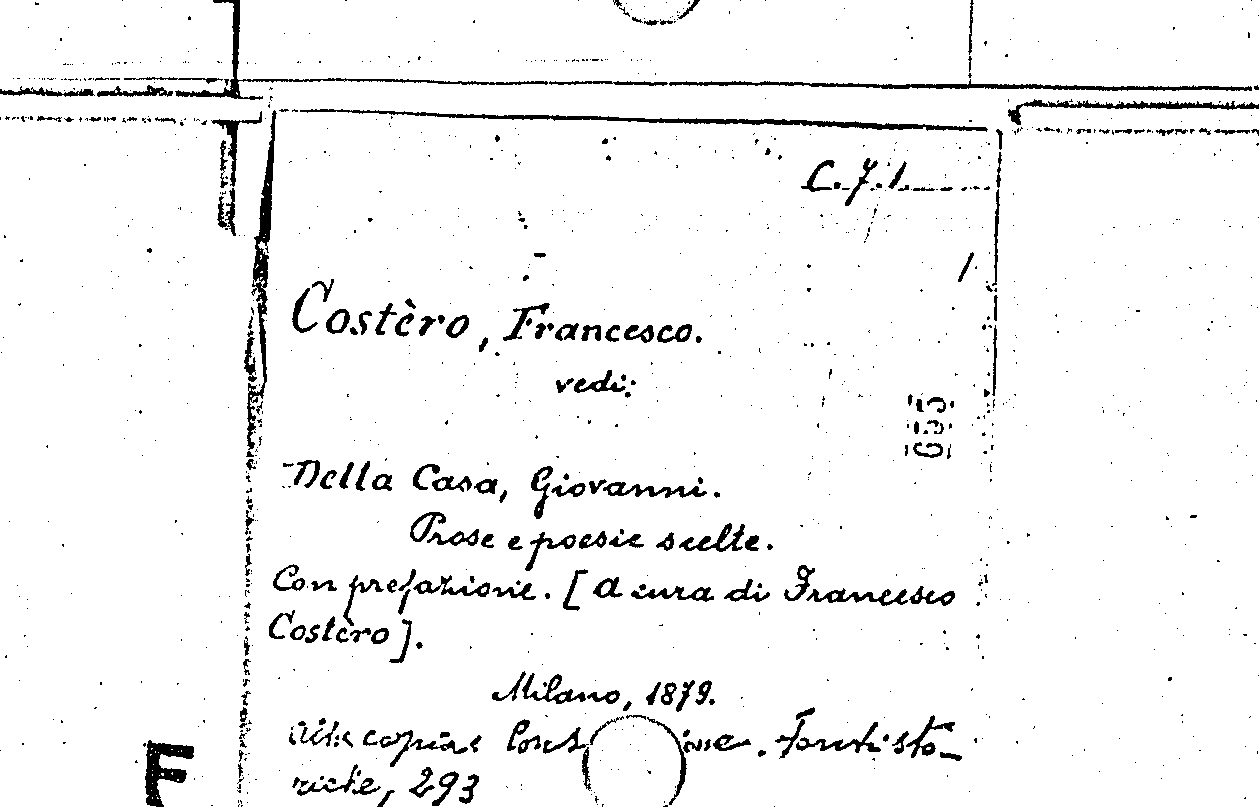 C.7.1.
1
Costèro, Francesco.
vedi:
655
Della Casa, Giovanni.
Prose e poesie scelte.
Con prefazione. [a cura di Francesco
Costèro].
Milano, 1879.
copia: Fonti sto-
riche, 293
F